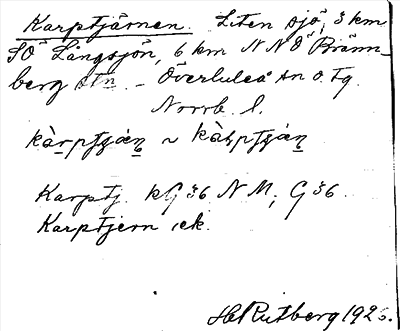 Karptjärnen. Liten sjö, 3 km
SÖ Långsjön, 6 km NNÖ Bränn-
berg stn. - Överluleå sn o. Fg.
Norrb. l.
kàrptjáṇ ~ kàrptjáṇ
Karptj. kG 36 NM, G 36.
Karptjern ek.
HRutberg 1926.